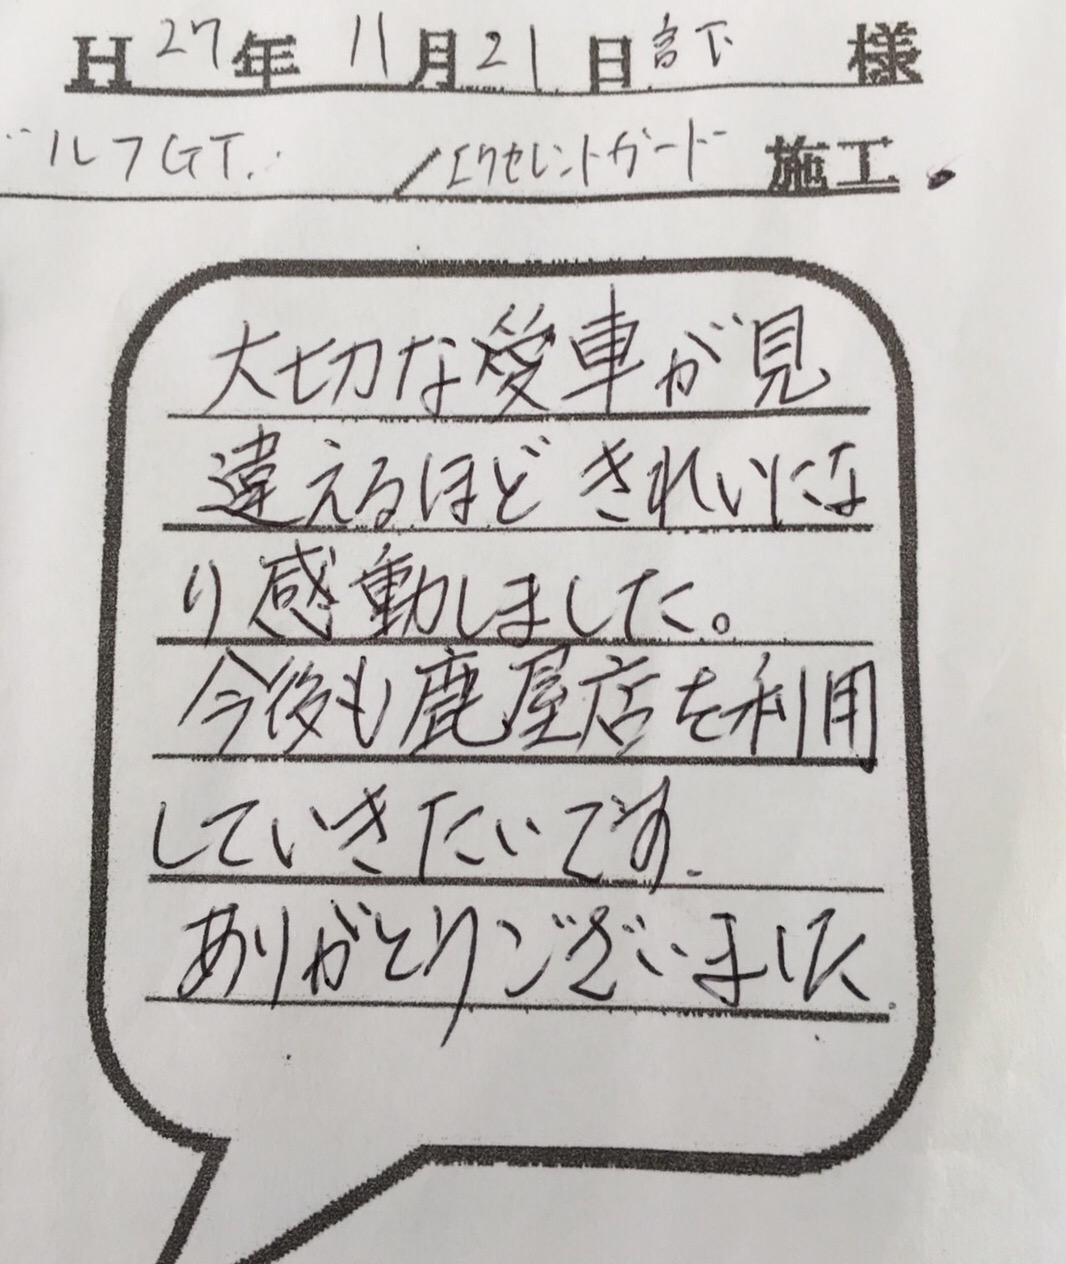 H27年 11月21日 宮下 様
ルフGT. /エクセレントガード 施工
大切な愛車が見
違えるほどきれいにな
り感動しました。
今後も鹿屋店を利用
していきたいです.
ありがとうございました